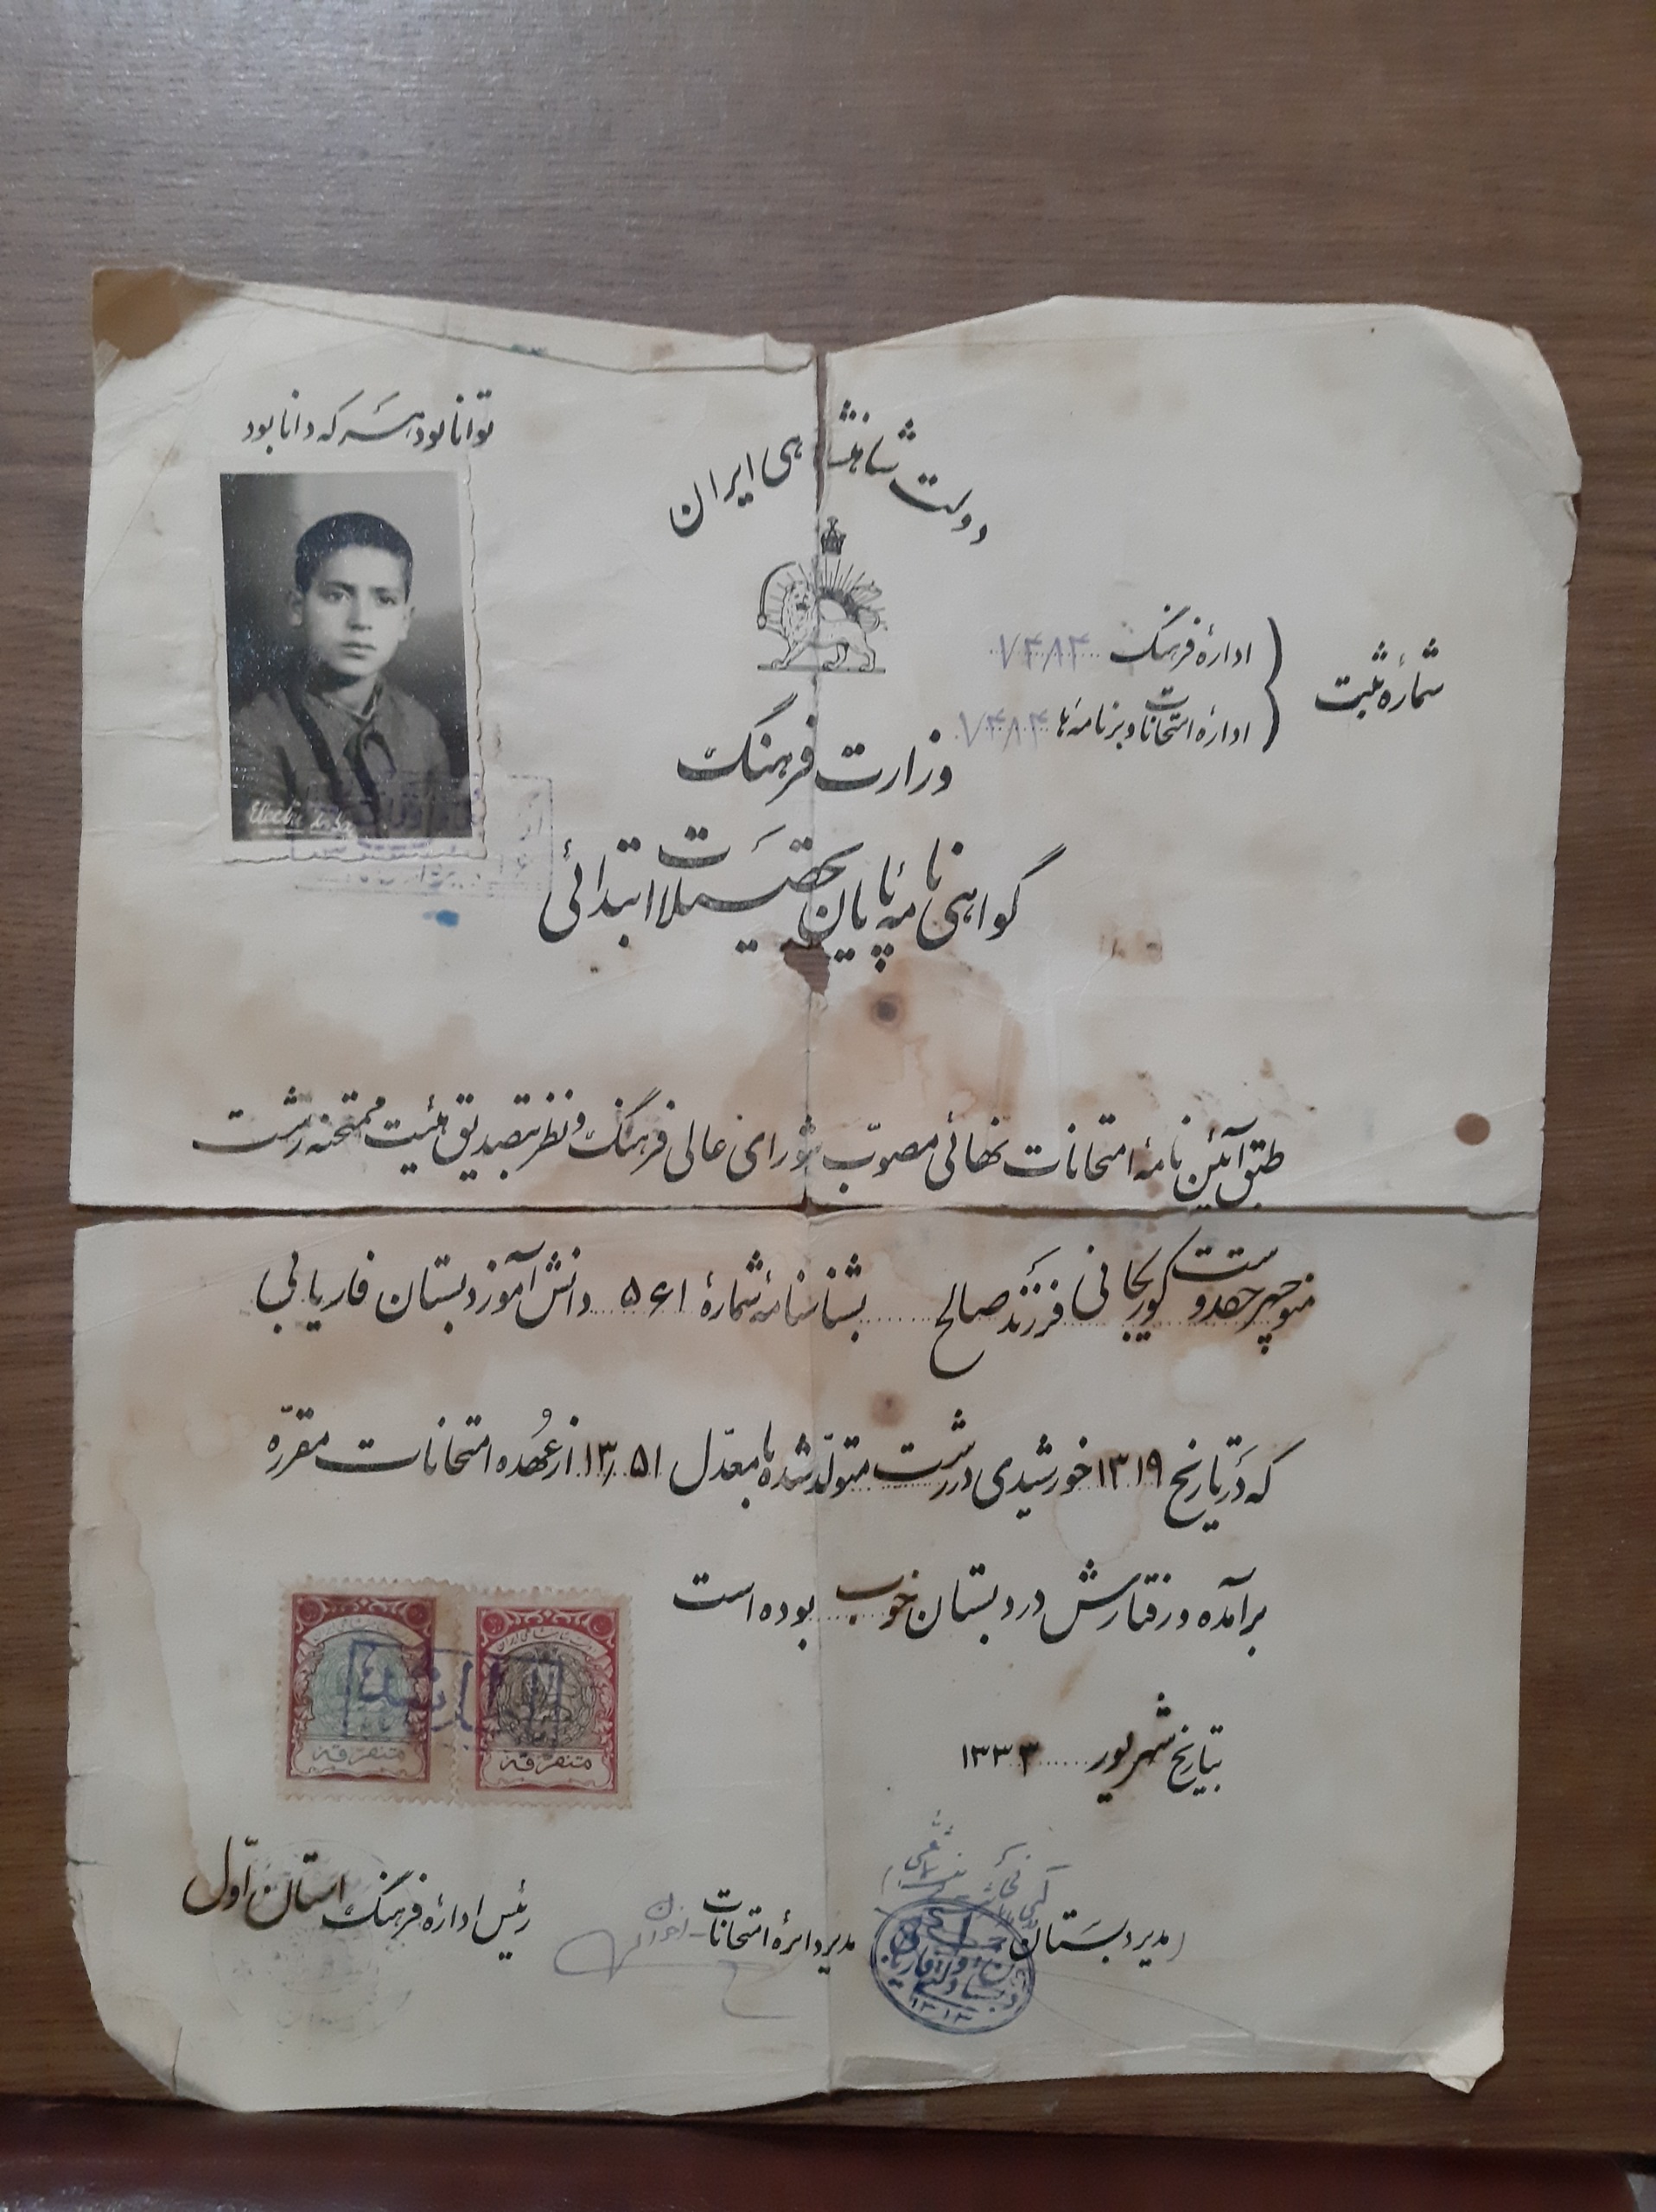 توانا بود هر که دانا بود
دولت شاهنشاهی ایران
شمارهٔ ثبت
ادارهٔ فرهنگ ۷۴۸۴
ادارهٔ امتحانات و برنامه‌ها ۷۴۸۴
وزارت فرهنگ
گواهی نامهٔ پایان تحصیلات ابتدائی
طبق آئین نامهٔ امتحانات نهائی مصوّب شورای عالی فرهنگ و نظر بتصدیق هیئت ممتحنه رشت
منوچهر حقدوست کوریجانی فرزند صالح بشناسنامه شمارهٔ ۵۶۱ دانش آموز دبستان فاریابی
که در تاریخ ۱۳۱۹ خورشیدی در رشت متولّد شده با معدّل ۱۳٫۵۱ از عهده امتحانات مقرّره
برآمده و رفتارش در دبستان خوب بوده است
بتاریخ شهریور ۱۳۳۳
متفرّقه
متفرّقه
مدیر دبستان
مدیر دائرهٔ امتحانات
رئیس ادارهٔ فرهنگ استان اوّل
۱۳۱۳